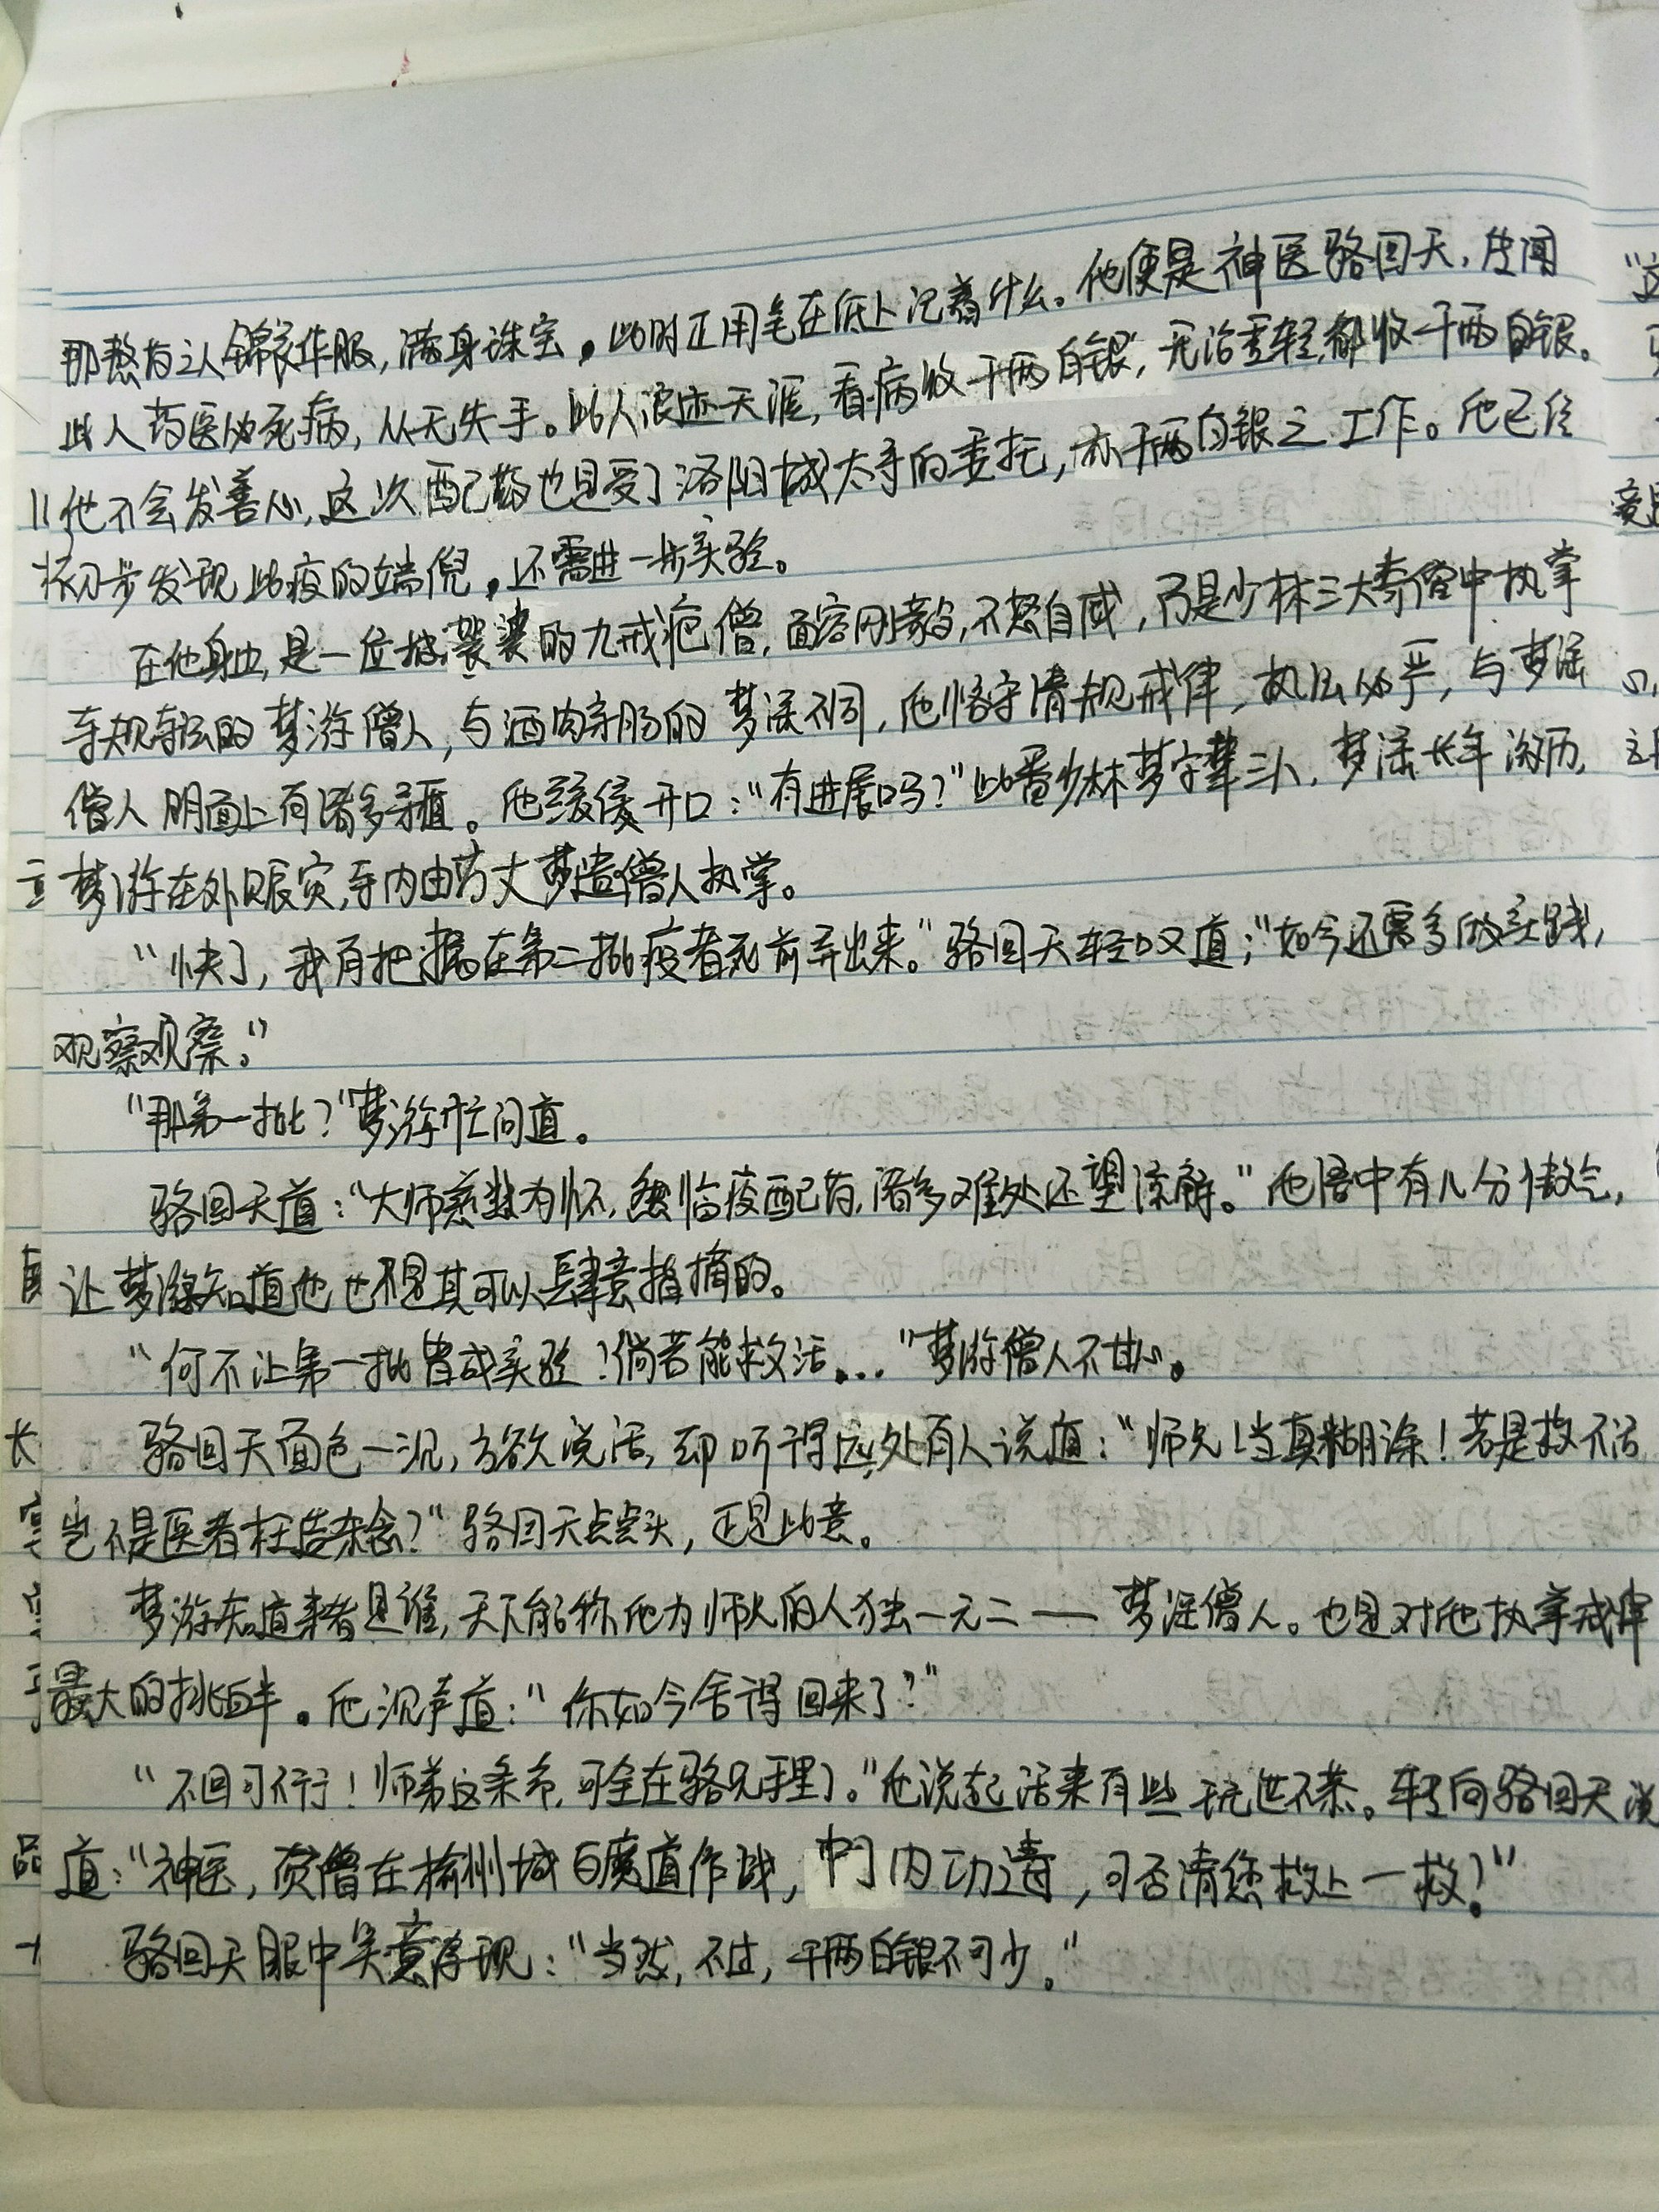 那熬药之人锦衣华服，满身珠宝，此时正用笔在纸上记着什么。他便是神医骆回天，传闻
此人药医必死病，从无失手。此人浪迹天涯，看病收千两白银，无论重轻，都收千两白银。
他不会发善心，这次配药也是受了洛阳城太守的委托，亦千两白银之工作。他已经
初步发现此疫的端倪，还需进一步实验。
在他身边，是一位披袈裟的九戒疤僧，面容刚毅，不怒自威，乃是少林三大奇僧中执掌
寺规寺法的梦游僧人，与酒肉穿肠的梦涯不同，他恪守清规戒律，执法必严，与梦涯
僧人明面上有诸多矛盾。他缓缓开口：“有进展吗？”此番少林梦字辈三人，梦涯长年游历，
梦游在外赈灾，寺内由方丈梦遣僧人执掌。
“快了，我有把握在第二批疫者死前弄出来。”骆回天轻叹道：“如今还需多做实践，
观察观察。”
“那第一批？”梦游忙问道。
骆回天道：“大师慈悲为怀，然临疫配药，诸多难处还望谅解。”他语中有几分傲气，
让梦游知道他也不是其可以肆意指摘的。
“何不让第一批曾成实验？倘若能救活...”梦游僧人不甘心。
骆回天面色一沉，方欲说话，却听得远处有人说道：“师兄！当真糊涂！若是救不活
岂不是医者枉造杀念？”骆回天点点头，正是此意。
梦游知道来者是谁，天下能称他为师兄的人独一无二——梦涯僧人。也是对他执掌戒律
最大的挑衅。他沉声道：“你如今舍得回来了？”
“不回可不行！师弟这条命，可全在骆兄手里了。”他说起话来有些玩世不恭。转向骆回天说
道：“神医，贫僧在榆州城与魔道作战，中了内功毒，可否请您救上一救？”
骆回天眼中笑意浮现：“当然，不过，千两白银不可少。”